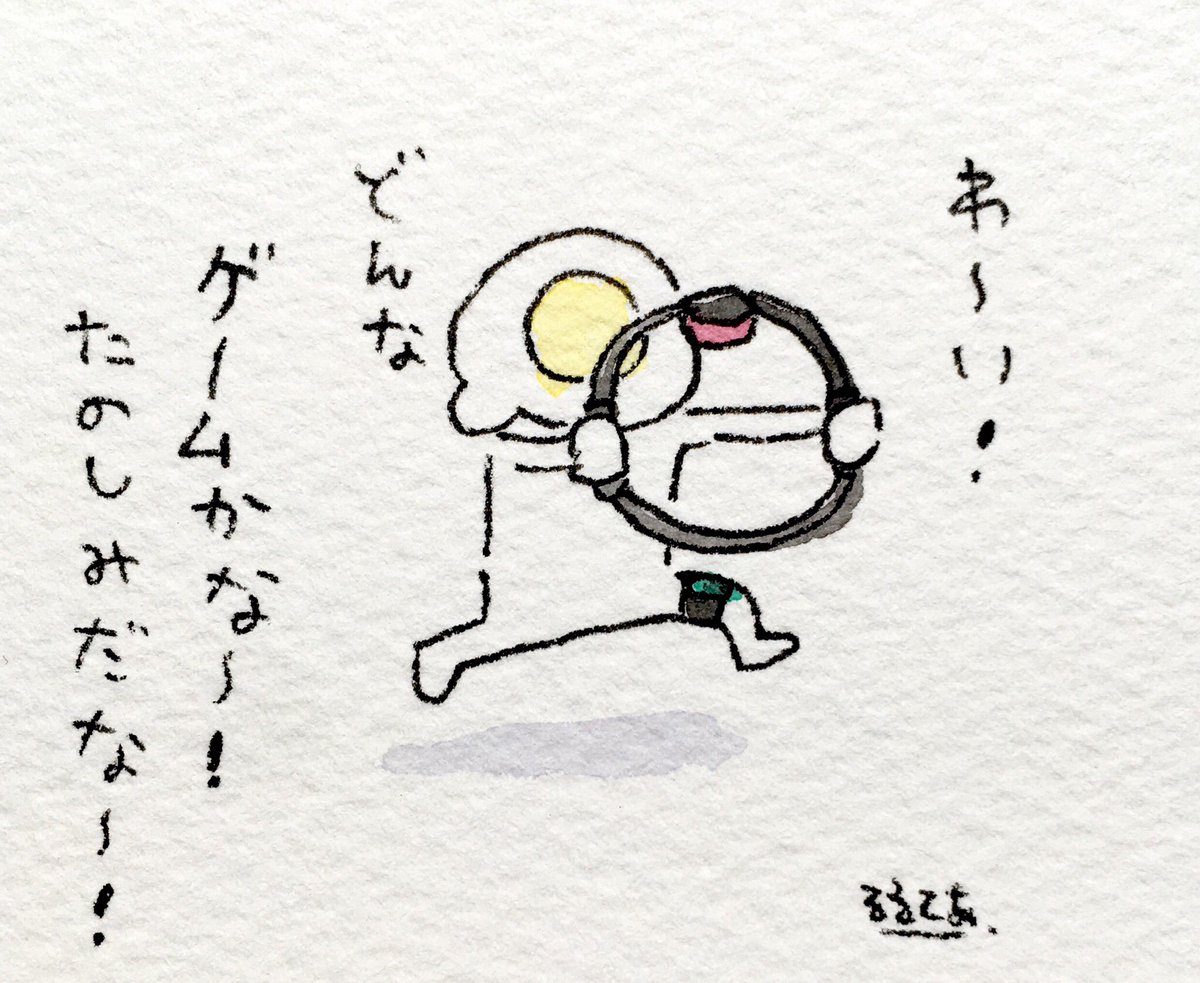 わ〜い!
どんな
ゲームかな〜!
たのしみだな〜!
るるてあ.